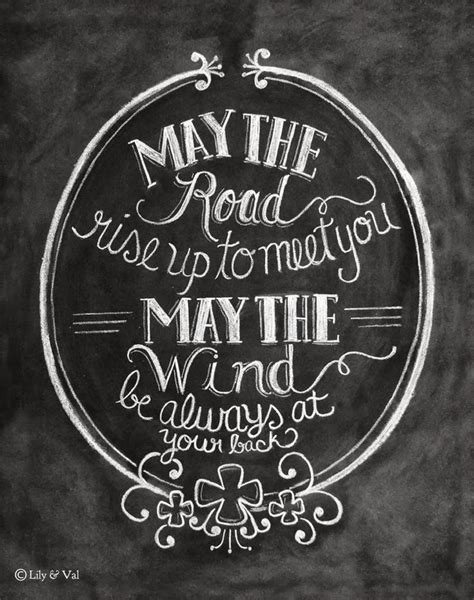 MAY THE
Road
rise up to meet you
MAY THE
Wind
be always at
your back
© Lily & Val